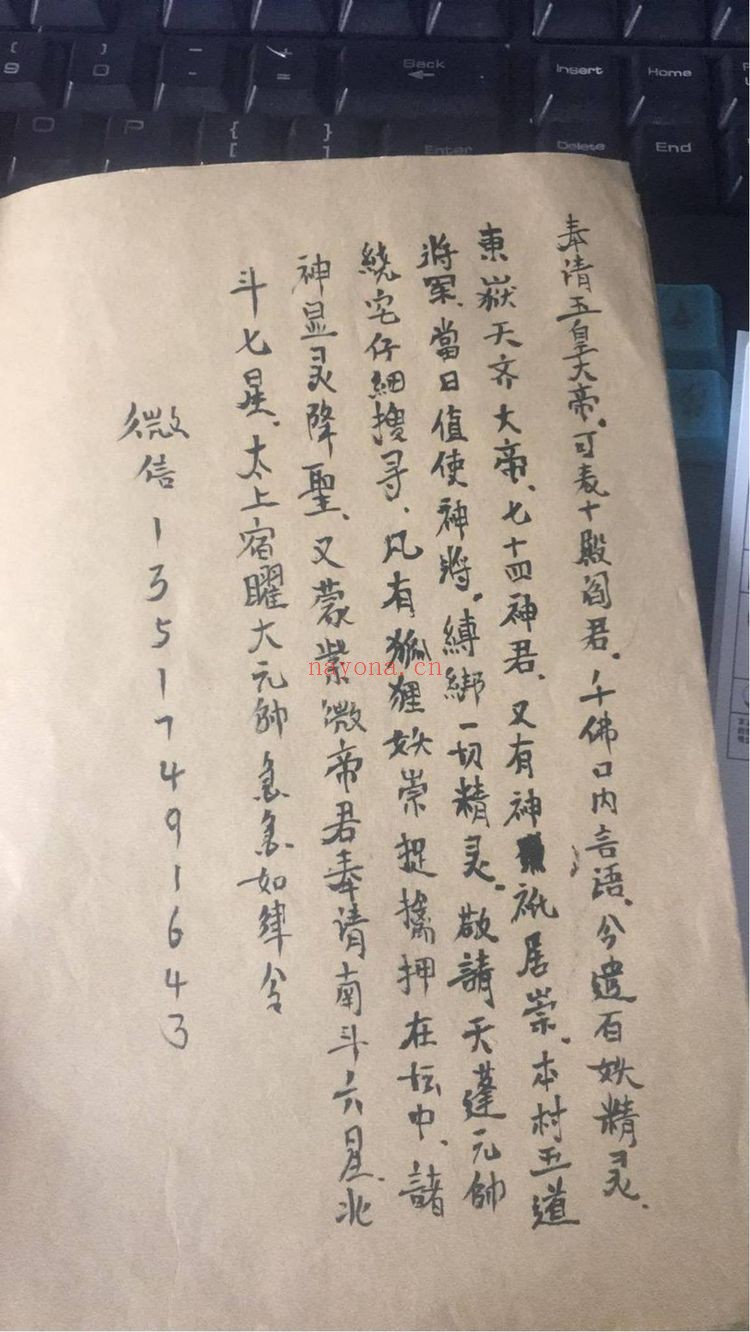 奉请玉皇大帝。可表十殿阎君。千佛口内言语。兮遣百妖精灵、
東嶽天齐大帝、七十四神君、又有神祇居崇。本村五道
将军、當日值使神将。縛綁一切精灵。敬請天蓬元帥
繞宅仔細搜寻、凡有狐狸妖崇捉擒押在坛中、諸
神显灵降聖、又蒙紫微帝君奉请南斗六星、北
斗七星、太上宿曜大元帥急急如律令
微信13517491643
nayona.cn
Back
Insert
Home
Enter
Delete
End